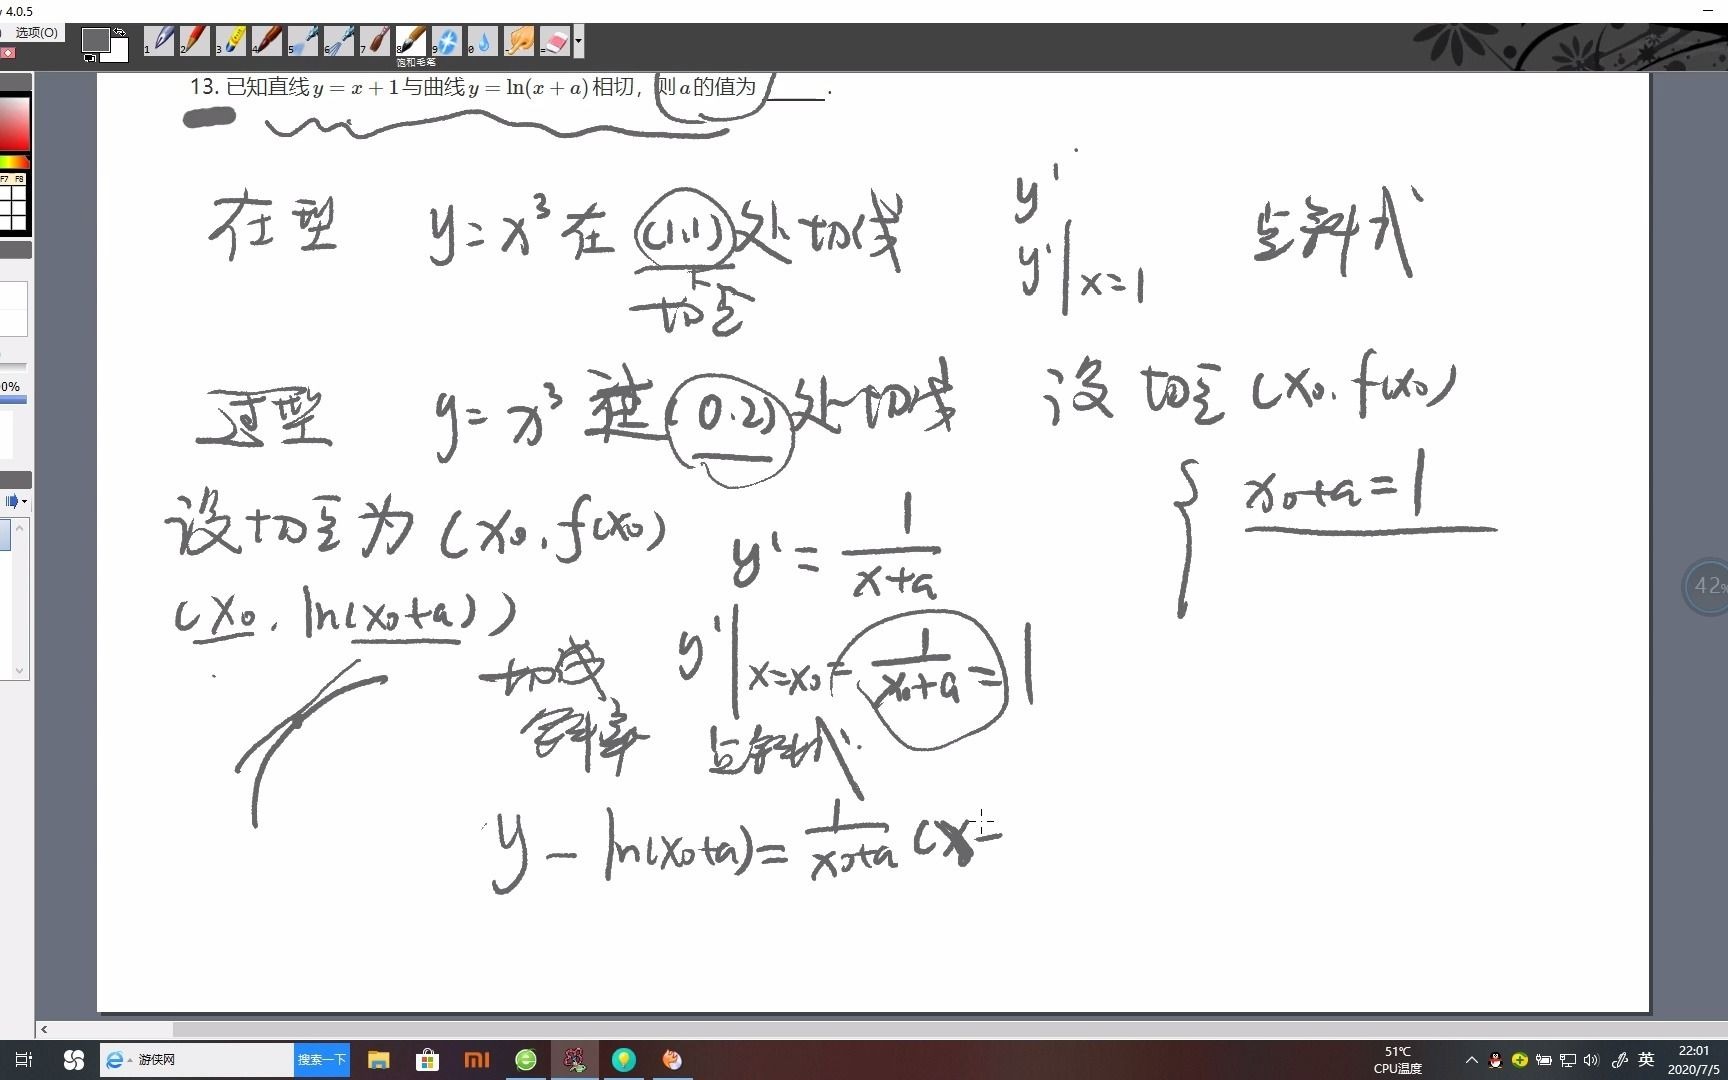 4.0.5
选项(O)
1 2 3 4 5 6 7 8 9 0
饱和毛笔
13. 已知直线y = x + 1与曲线y = ln(x + a)相切，则a的值为 _____ .
在型 y = x³ 在 (1,1) 处切线 y' 点斜式
y'|x=1
切点
过型 y = x³ 过 (0.2) 处切线 设 切点 (x₀, f(x₀)
x₀+a=1
设切点为 (x₀, f(x₀)
y' = 1/(x+a)
(x₀, ln(x₀+a))
切线 y'|x=x₀ = 1/(x₀+a) = 1
斜率 点斜式
y - ln(x₀+a) = 1/(x₀+a) (x-
F7 F8
0%
42%
游侠网
搜索一下
51℃
CPU温度
英
22:01
2020/7/5